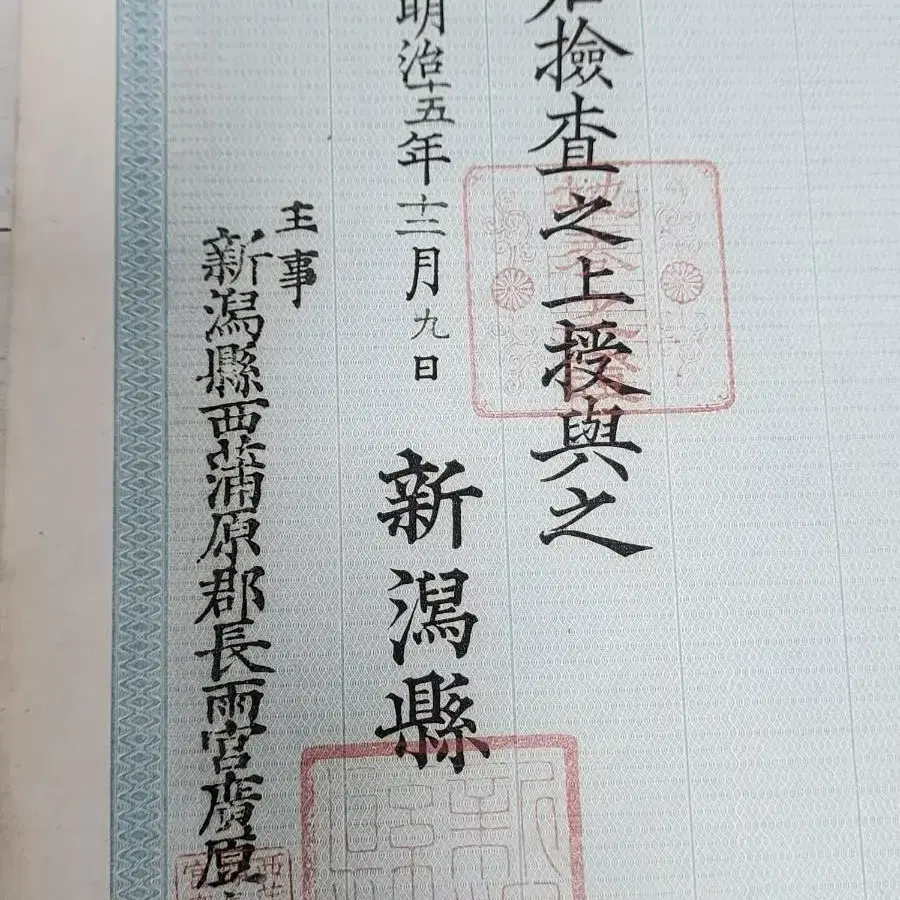 撿査之上授與之
明治十五年十二月九日
新潟縣
主事
新潟縣西蒲原郡長雨宮廣原